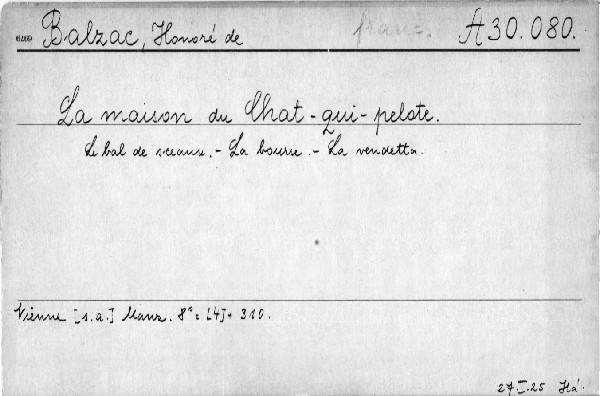 Balzac, Honoré de franz. A 30.080.
La maison du Chat-qui-pelote.
Le bal de sceaux. - La bourse. - La vendetta.
Vienne [s.a.] Manz. 8° = [4] + 310.
27 I. 25 Há.